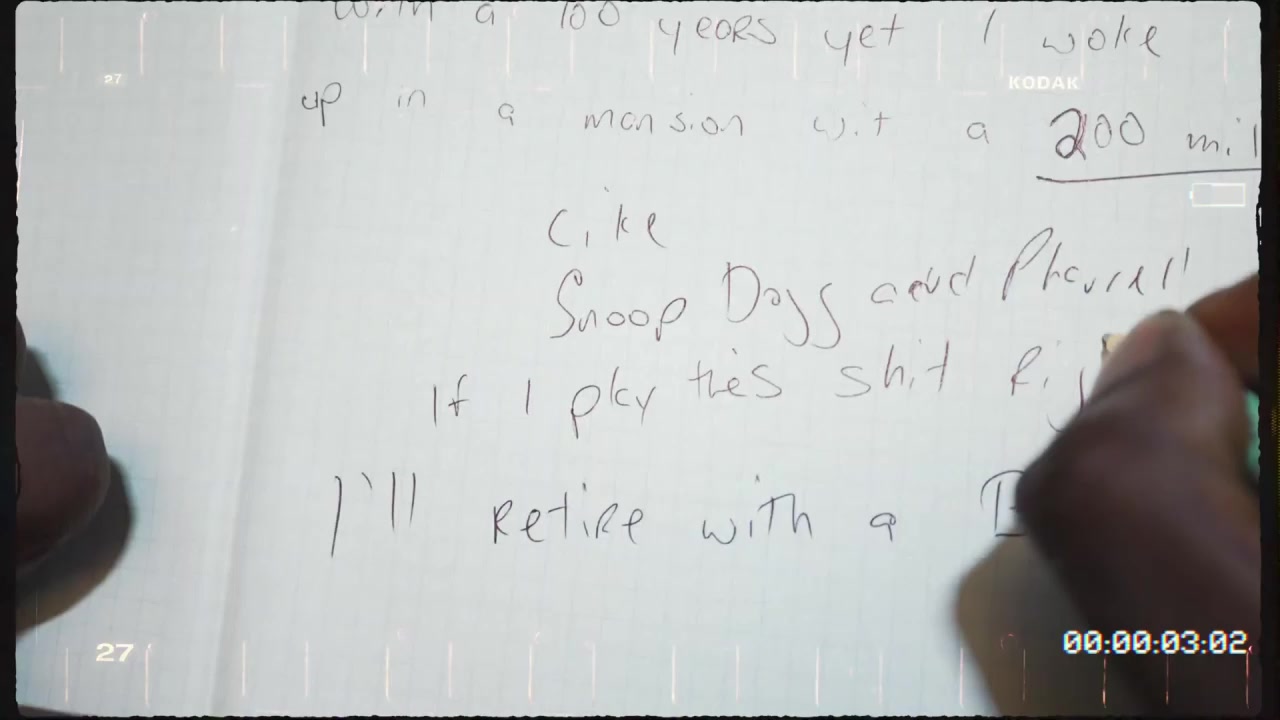 with a 100 years yet I woke
27
KODAK
up in a mansion wit a 200 mil
Like
Snoop Dogg and Pharrell
If I play this shit
I'll retire with a
27
00:00:03:02